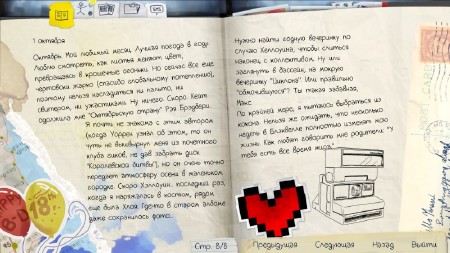 1 октября
Октябрь. Мой любимый месяц. Лучшая погода в году.
Люблю смотреть, как листья меняют цвет,
превращаясь в крошечные огоньки. Но сейчас все еще
чертовски жарко (спасибо глобальному потеплению),
поэтому нельзя насладиться ни пальто, ни
свитером, ни ужастиками. Ну ничего. Скоро. Кейт
одолжила мне "Октябрьскую страну" Рэя Брэдбери.
Я почти не знакома с этим автором
(когда Уоррен узнал об этом, то он
чуть не вышвырнул меня из почетного
клуба гиков, не дав забрать диск
"Королевской битвы"), но он очень точно
передает атмосферу осени в маленьком
городке. Скоро Хэллоуин, последний раз,
когда я наряжалась в костюм, рядом
еще была Хлоя. Где-то в старом альбоме
даже сохранилось фото...
Нужно найти годную вечеринку по
случаю Хеллоуина, чтобы слиться
наконец с коллективом. Ну или
заглянуть в бассейн, на мокрую
вечеринку "Циклона". Или правильно
Ты такая забавная,
Макс.
По крайней мере, я пытаюсь выбраться из
кокона. Нельзя же ожидать, что несколько
недель в Блэквелле полностью изменят мою
жизнь. Как любят говорить мне родители: "у
тебя есть все время мира."
Стр. 8/8
Предыдущая Следующая Назад Выйти